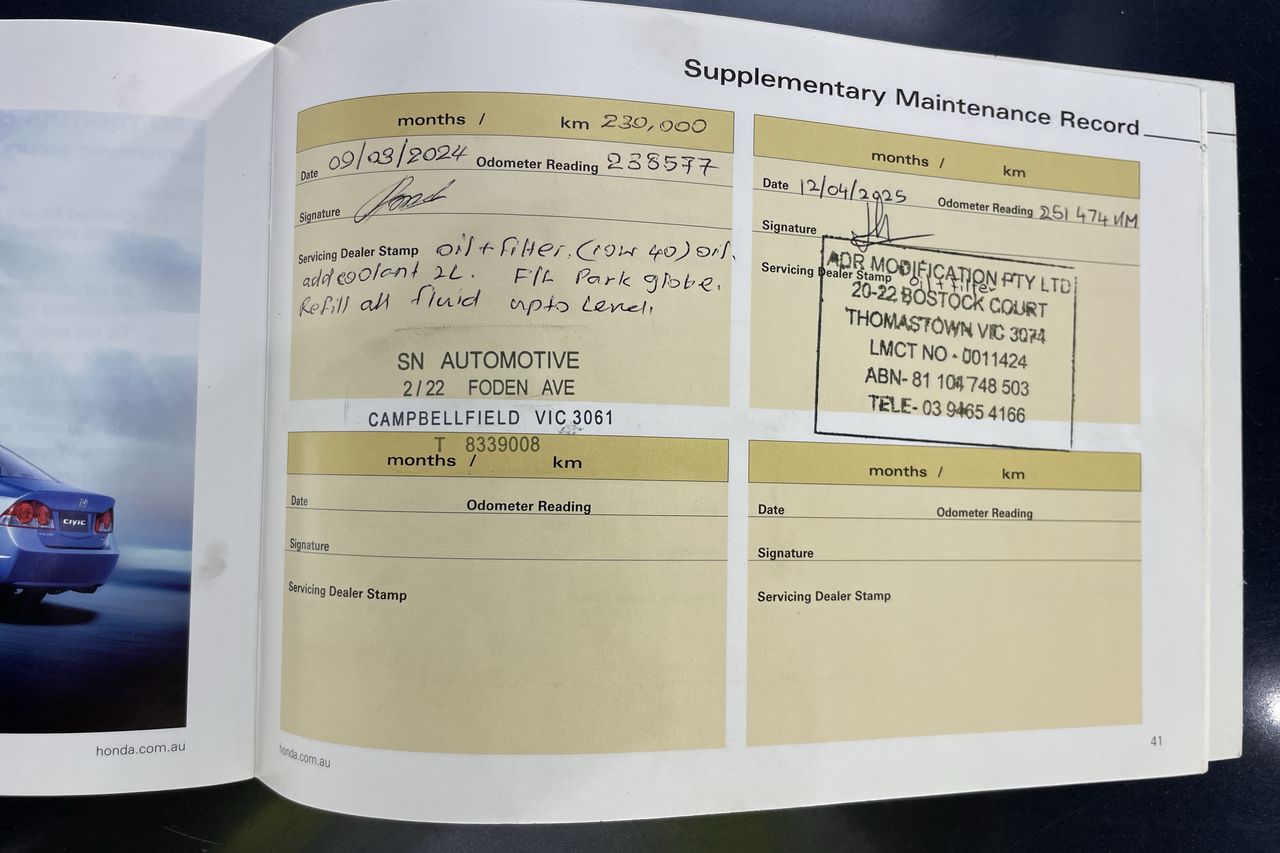 Supplementary Maintenance Record
months / km 230,000
Date 09/03/2024 Odometer Reading 238577
Signature
Servicing Dealer Stamp oil + filter, (10W 40) oil.
add coolant 2L. F/L Park globe.
Refill all fluid upto level.
SN AUTOMOTIVE
2/22 FODEN AVE
CAMPBELLFIELD VIC 3061
T 8339008
months / km
Date 12/04/2025 Odometer Reading 251 474 KM
Signature
Servicing Dealer Stamp oil + filter
ADR MODIFICATION PTY LTD
20-22 BOSTOCK COURT
THOMASTOWN VIC 3074
LMCT NO - 0011424
ABN- 81 104 748 503
TELE- 03 9465 4166
months / km
Date Odometer Reading
Signature
Servicing Dealer Stamp
months / km
Date Odometer Reading
Signature
Servicing Dealer Stamp
CIVIC
honda.com.au
honda.com.au
41